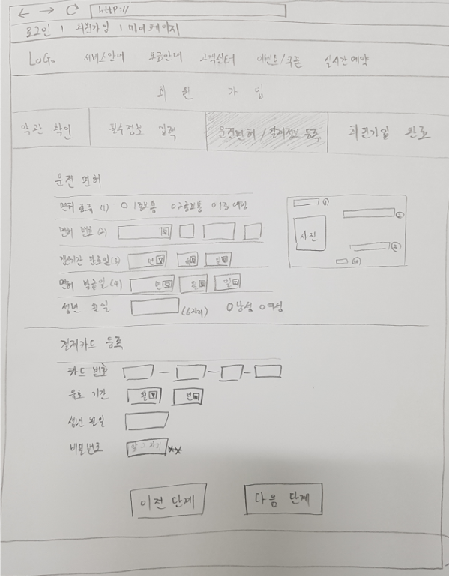 http://
로그인 | 회원가입 | 마이페이지
LoGo 서비스안내 요금안내 고객센터 이벤트/쿠폰 실시간예약
회원 가입
약관 확인 필수정보 입력 운전면허/결제카드 등록 회원가입 완료
운전 면허
면허 종류 (1) O 1종보통 O 2종보통 O 1종 대형
면허 번호 (2)
(3) 년 월 일
면허 발급일 (4) 년 월 일
생년 월일 (6자리) O 남성 O 여성
사진
결제카드 등록
카드 번호 - - -
유효 기간 월 년
생년 월일
비밀번호 **
이전 단계 다음 단계